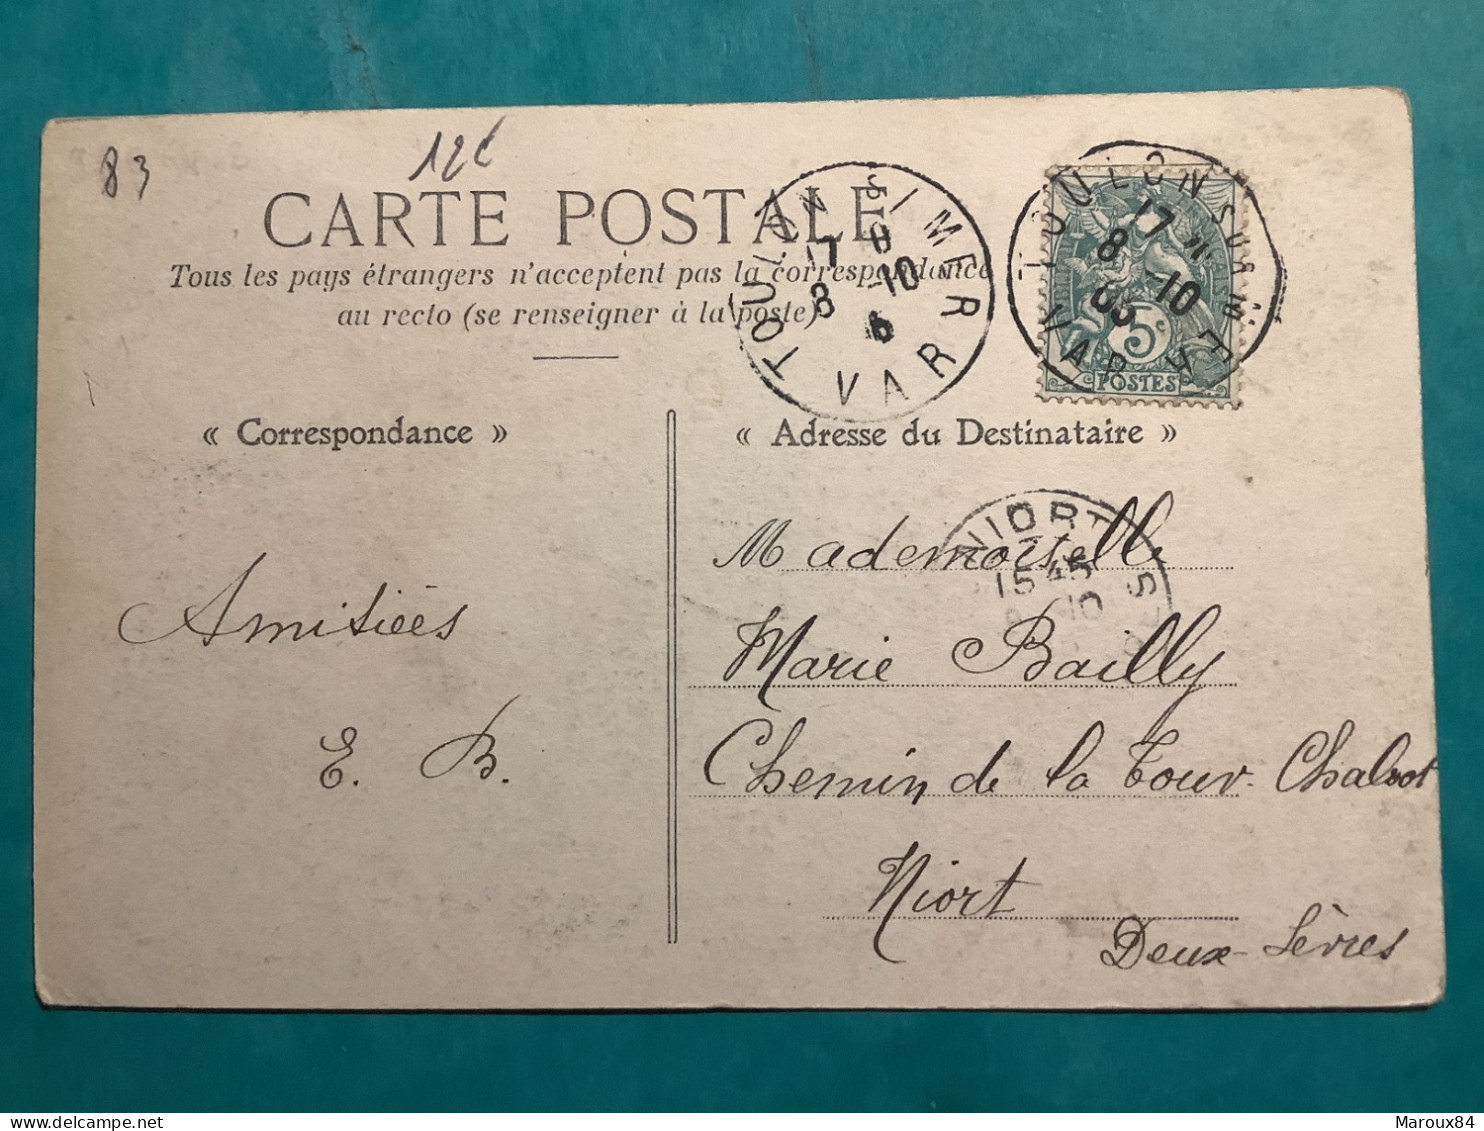 83
12€
CARTE POSTALE
Tous les pays étrangers n'acceptent pas la correspondance
au recto (se renseigner à la poste)
TOULON S/MER
VAR
8 -10
TOULON SUR MER
VAR
17
8 -10
5c
POSTES
« Correspondance »
« Adresse du Destinataire »
NIORT
15 45
10
Amitiées
E. B.
Mademoiselle
Marie Bailly
Chemin de la Tour Chabot
Niort
Deux-Sèvres
Maroux84